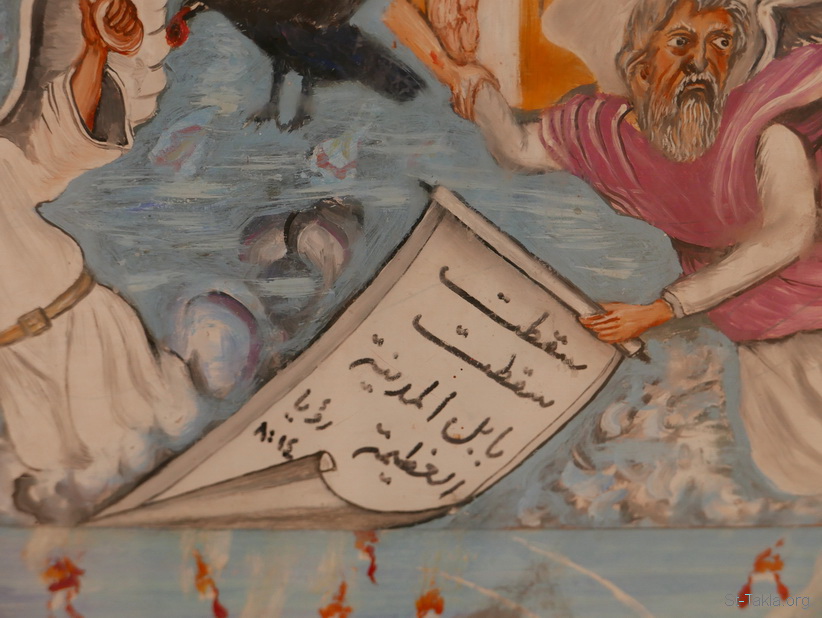 سقطت
سقطت
بابل المدينة
العظيمة
رؤيا
٨:١٤
St-Takla.org